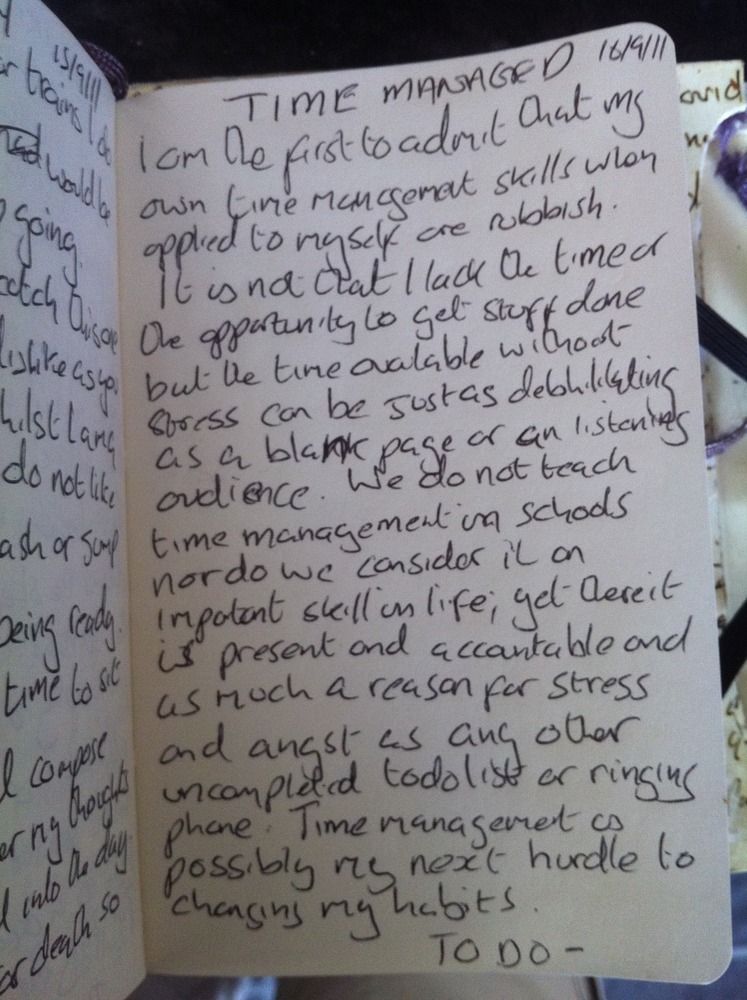 15/9/11
or trains I do
would be
going.
catch this one
dislike as you
whilst I am
do not like
ash or
being ready.
time to sit
I compose
er my thoughts
d into the day
or death so
16/9/11
TIME MANAGED
I am the first to admit that my
own time management skills when
applied to myself are rubbish.
It is not that I lack the time or
the opportunity to get stuff done
but the time available without
stress can be just as debhilitating
as a blank page or an listening
audience. We do not teach
time management in schools
nor do we consider it an
impotant skill in life; yet there it
is present and accountable and
as much a reason for stress
and angst as any other
uncompleted todo list or ringing
phone. Time management is
possibly my next hurdle to
changing my habits.
TO DO -